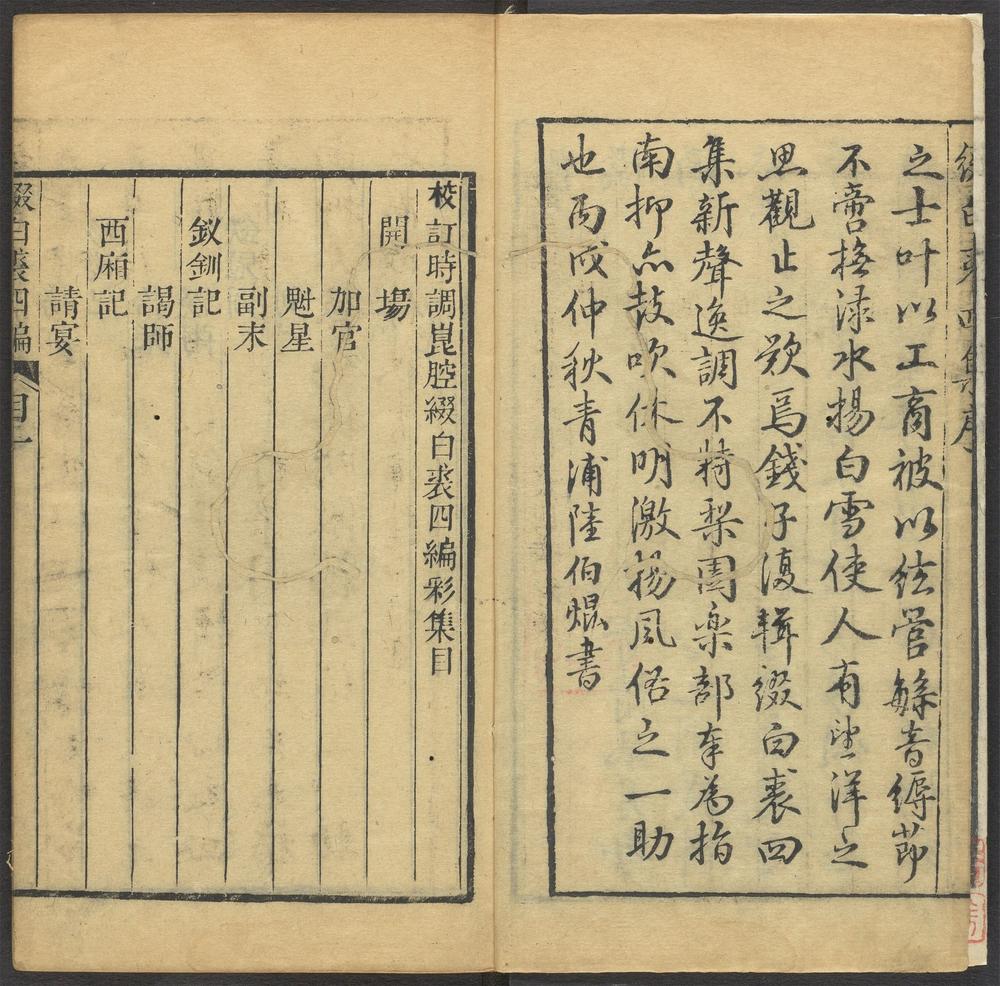 綴白裘四集序
之士叶以工商被以絃管繇音縟節
不啻撫渌水揚白雪使人有望洋之
思觀止之歎焉錢子復輯綴白裘四
集新聲逸調不特梨園樂部奉為指
南抑亦鼓吹休明激揚風俗之一助
也丙戌仲秋青浦陸伯焜書
校訂時調崑腔綴白裘四編彩集目
開場
加官
魁星
副末
釵釧記
謁師
西廂記
請宴
綴白裘四編 目 一